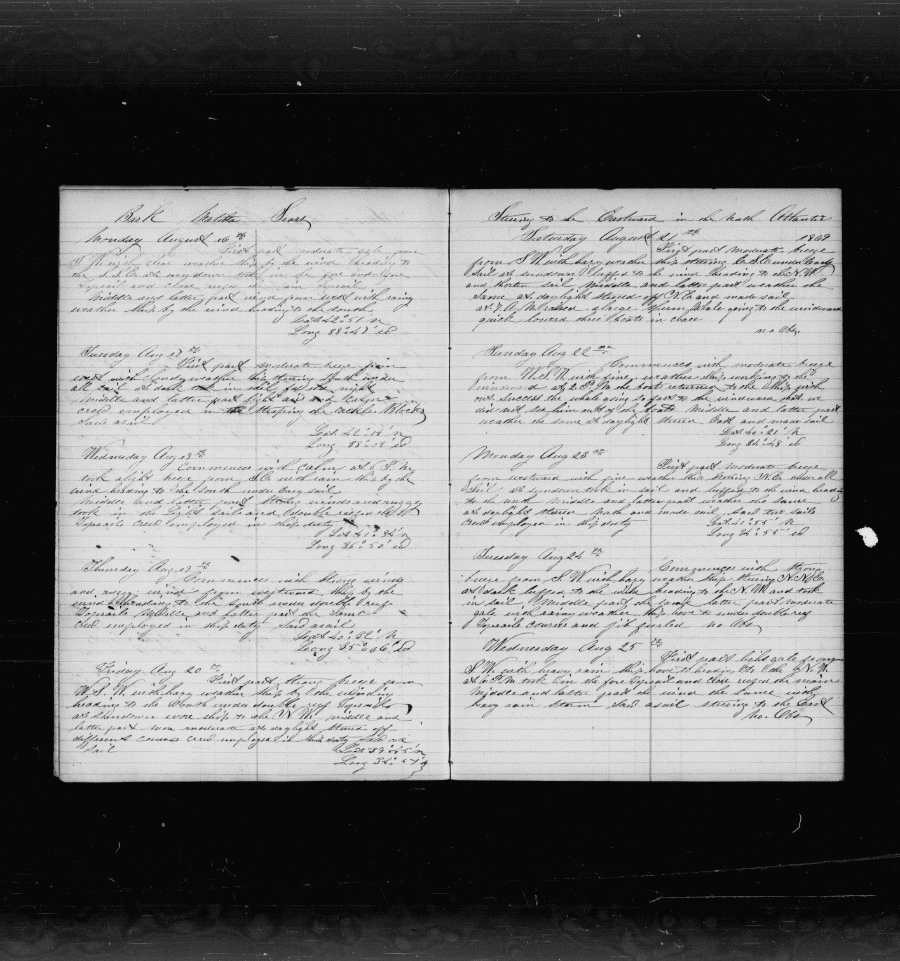 Bark Matilda Sears
Monday August 16th
First part moderate gale from
S W with clear weather ship by the wind heading to
the S.S.E. at sundown took in the
topsail and close reefed the main topsail
Middle and latter part wind from west with rainy
weather ship by the wind heading to the south
Lat 42° 51' N
Long 38° 43' W
Tuesday Aug 17th
First part moderate breeze from
west with weather ship steering South under
all sail at dark took in sail for the night
Middle and latter part light air and calm
crew employed in the tackle Blocks
Lat 42° N
Long W
Wednesday Aug 18th
Commences with Calm at 6 P.M
took a light breeze from S.E with rain ship by the
wind heading to the South under easy sail
Middle and latter part strong winds and rugged
took in the light sails and double reefed the
Topsails crew employed in ship duty
Lat 41° 34' N
Long 36° 50' W
Thursday Aug 19th
Commences with strong winds
and rugged wind from westward ship by the
wind heading to the South under double reef
Topsails Middle and latter part the same
Crew employed in ship duty Saw a sail
Lat 40° 32' N
Long 35° 06' W
Friday Aug 20th
First part strong breeze from
W.S.W. with hazy weather ship by the wind
heading to the South under double reef Topsails
at sundown wore ship to the N.W. middle and
latter part more moderate at daylight stood off
different courses crew employed in ship duty Saw a
Sail
Lat 39° 45' N
Long 34° 57' W
Steering to the Eastward in the North Atlantic
Saturday August 21th 1869
First part moderate breeze
from S.W with hazy weather ship steering E.S.E under easy
Sail at sundown luffed to the wind heading to the N.W.
and shorten sail Middle and latter part weather the
same at daylight steered off N.E and made sail
at 7 A.M raised a large Sperm Whale going to the windward
quick lowered three boats in chase
no Obs.
Sunday Aug 22nd
Commences with moderate breeze
from W.S.W. with fine weather ship working to the
windward at 2 P.M the boats returned to the Ship with
out success the whale going so fast to the windward that we
did not see him out of the boats Middle and latter part
weather the same at daylight steered East and made sail
Lat 40° 21' N
Long 34° 48' W
Monday Aug 23th
First part moderate breeze
from westward with fine weather ship steering N.E under all
Sail at sundown took in sail and luffed to the wind heading
to the north Middle and latter part weather the same
at daylight steered North and made sail Saw two sails
Crew employed in ship duty
Lat 40° 55' N
Long 34° 55' W
Tuesday Aug 24th
Commences with strong
breeze from S.W with hazy weather ship steering N.N.E.
at dark luffed to the wind heading to the N.W and took
in sail Middle part the same latter part moderate
gale with rainy weather ship hove to under double reef
Topsails courses and jib furled no Obs
Wednesday Aug 25th
First part light gale from
S.W. with heavy rain ship hove to heading to the N.W.
at 4 P.M took in the fore topsail and close reefed the main
Middle and latter part the wind the same with
heavy rain storm Saw a sail steering to the East
no. Obs